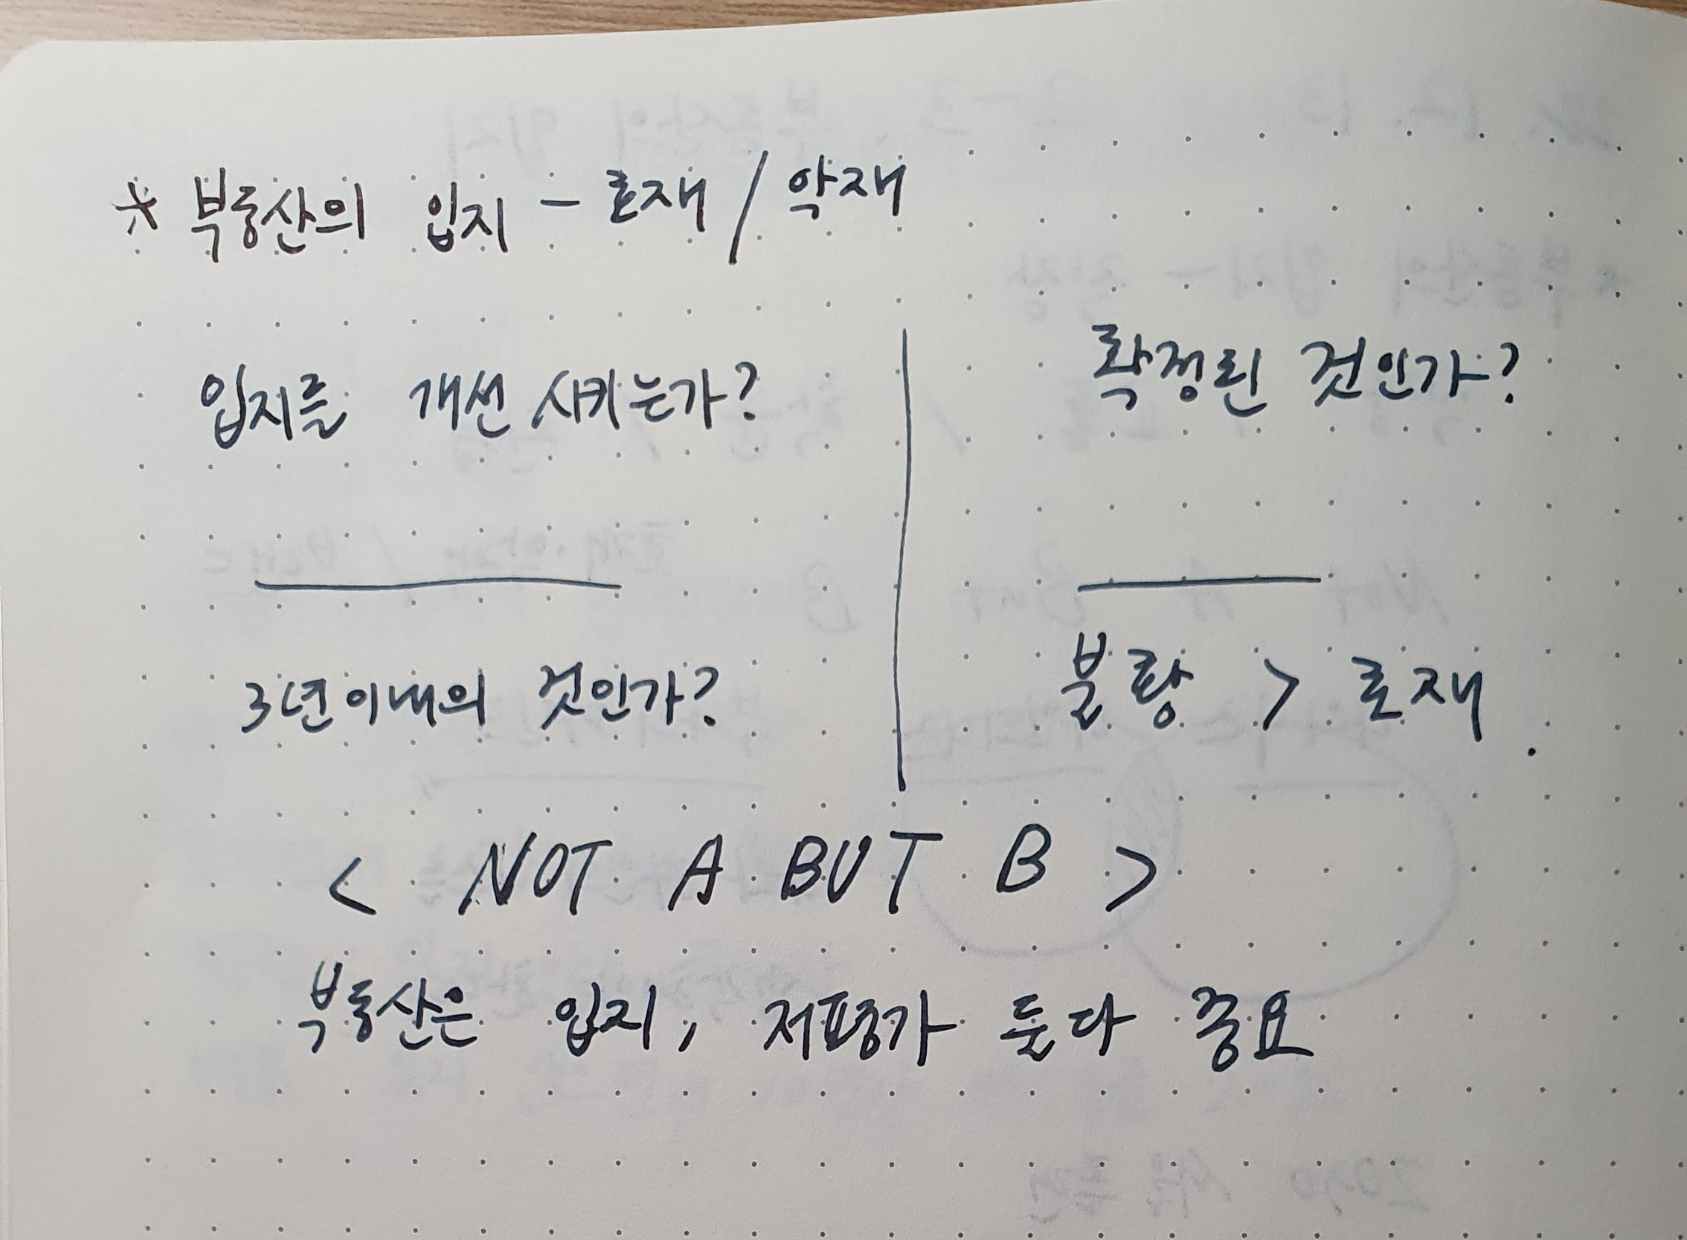 * 부동산의 입지 - 호재 / 악재
입지를 개선 시키는가?
확정된 것인가?
3년이내의 것인가?
불황 > 호재
< NOT A BUT B >
부동산은 입지, 저평가 둘다 중요